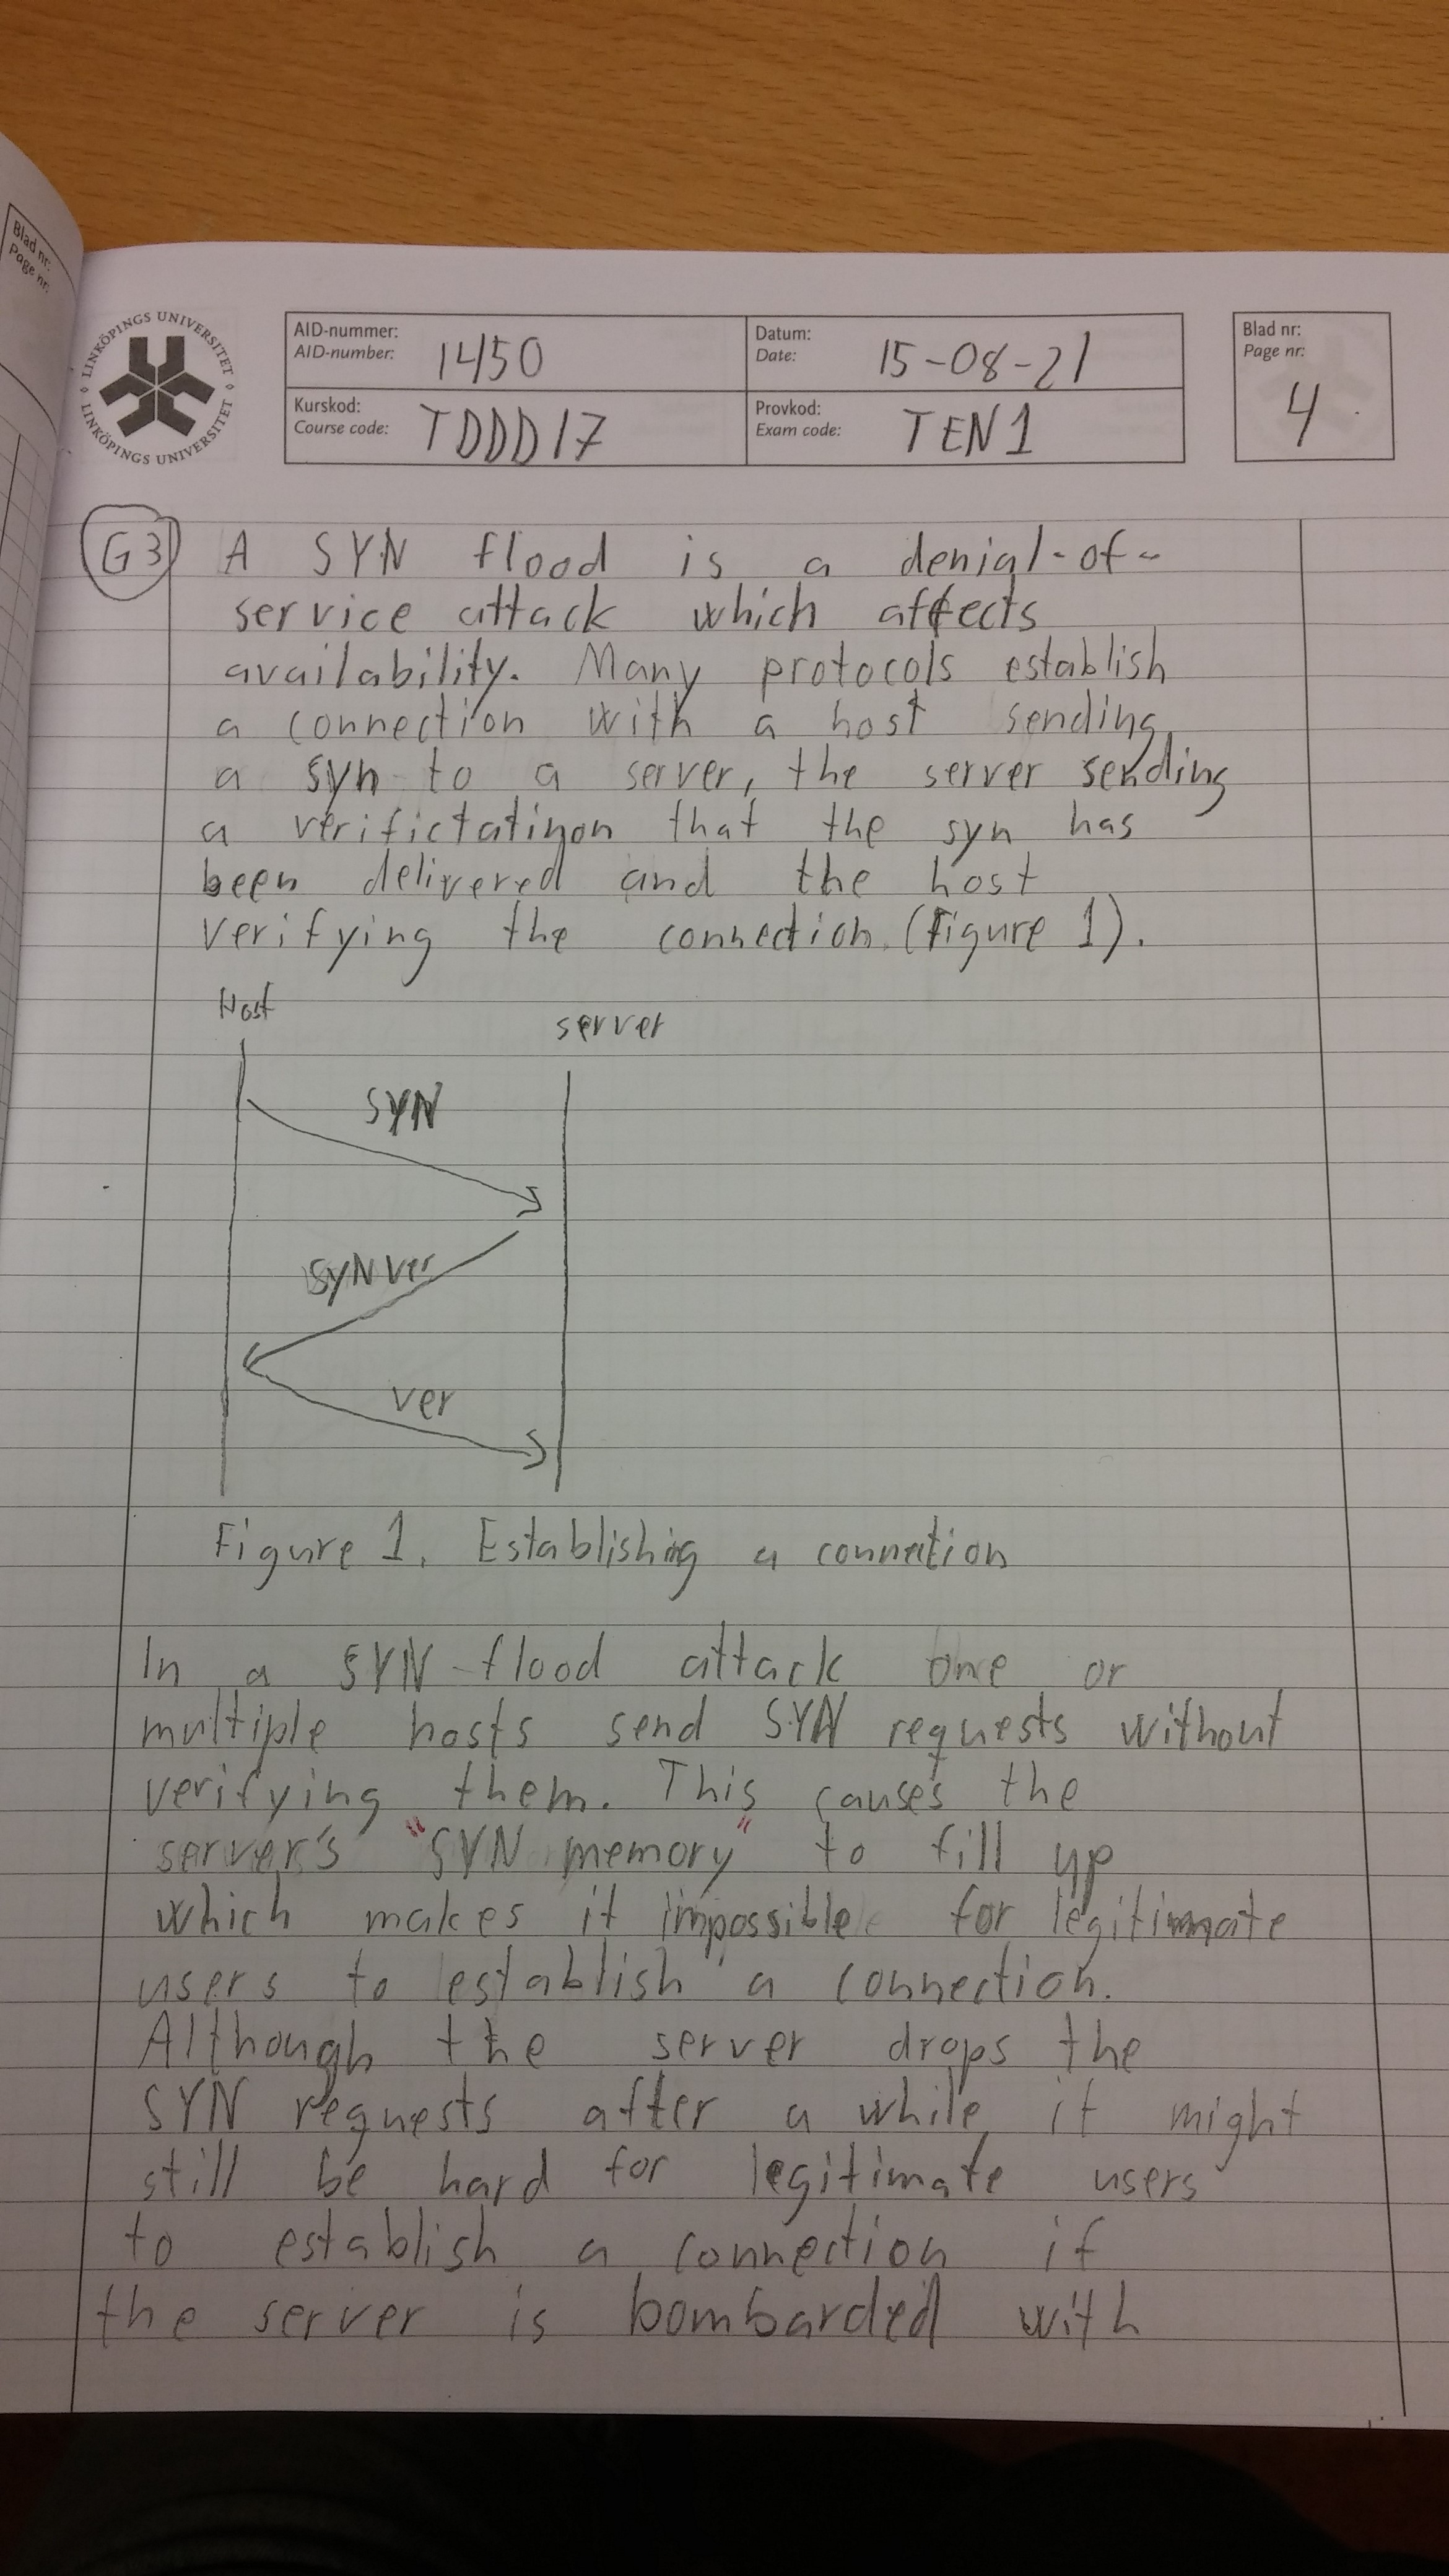 Blad nr:
Page nr:
LINKÖPINGS UNIVERSITET
LINKÖPINGS UNIVERSITET
AID-nummer:
AID-number: 1450
Datum:
Date: 15-08-21
Blad nr:
Page nr:
4
Kurskod:
Course code: TDDD17
Provkod:
Exam code: TEN1
G3 A SYN flood is a denial-of-
service attack which affects
availability. Many protocols establish
a connection with a host sending
a syn to a server, the server sending
a verifictatinon that the syn has
been delivered and the host
verifying the connection (Figure 1).
Host
server
SYN
SYN ver
ver
Figure 1. Establishing a connection
In a SYN-flood attack one or
multiple hosts send SYN requests without
verifying them. This causes the
server's "SYN memory" to fill up
which makes it impossible for legitimate
users to establish a connection.
Although the server drops the
SYN requests after a while, it might
still be hard for legitimate users
to establish a connection if
the server is bombarded with